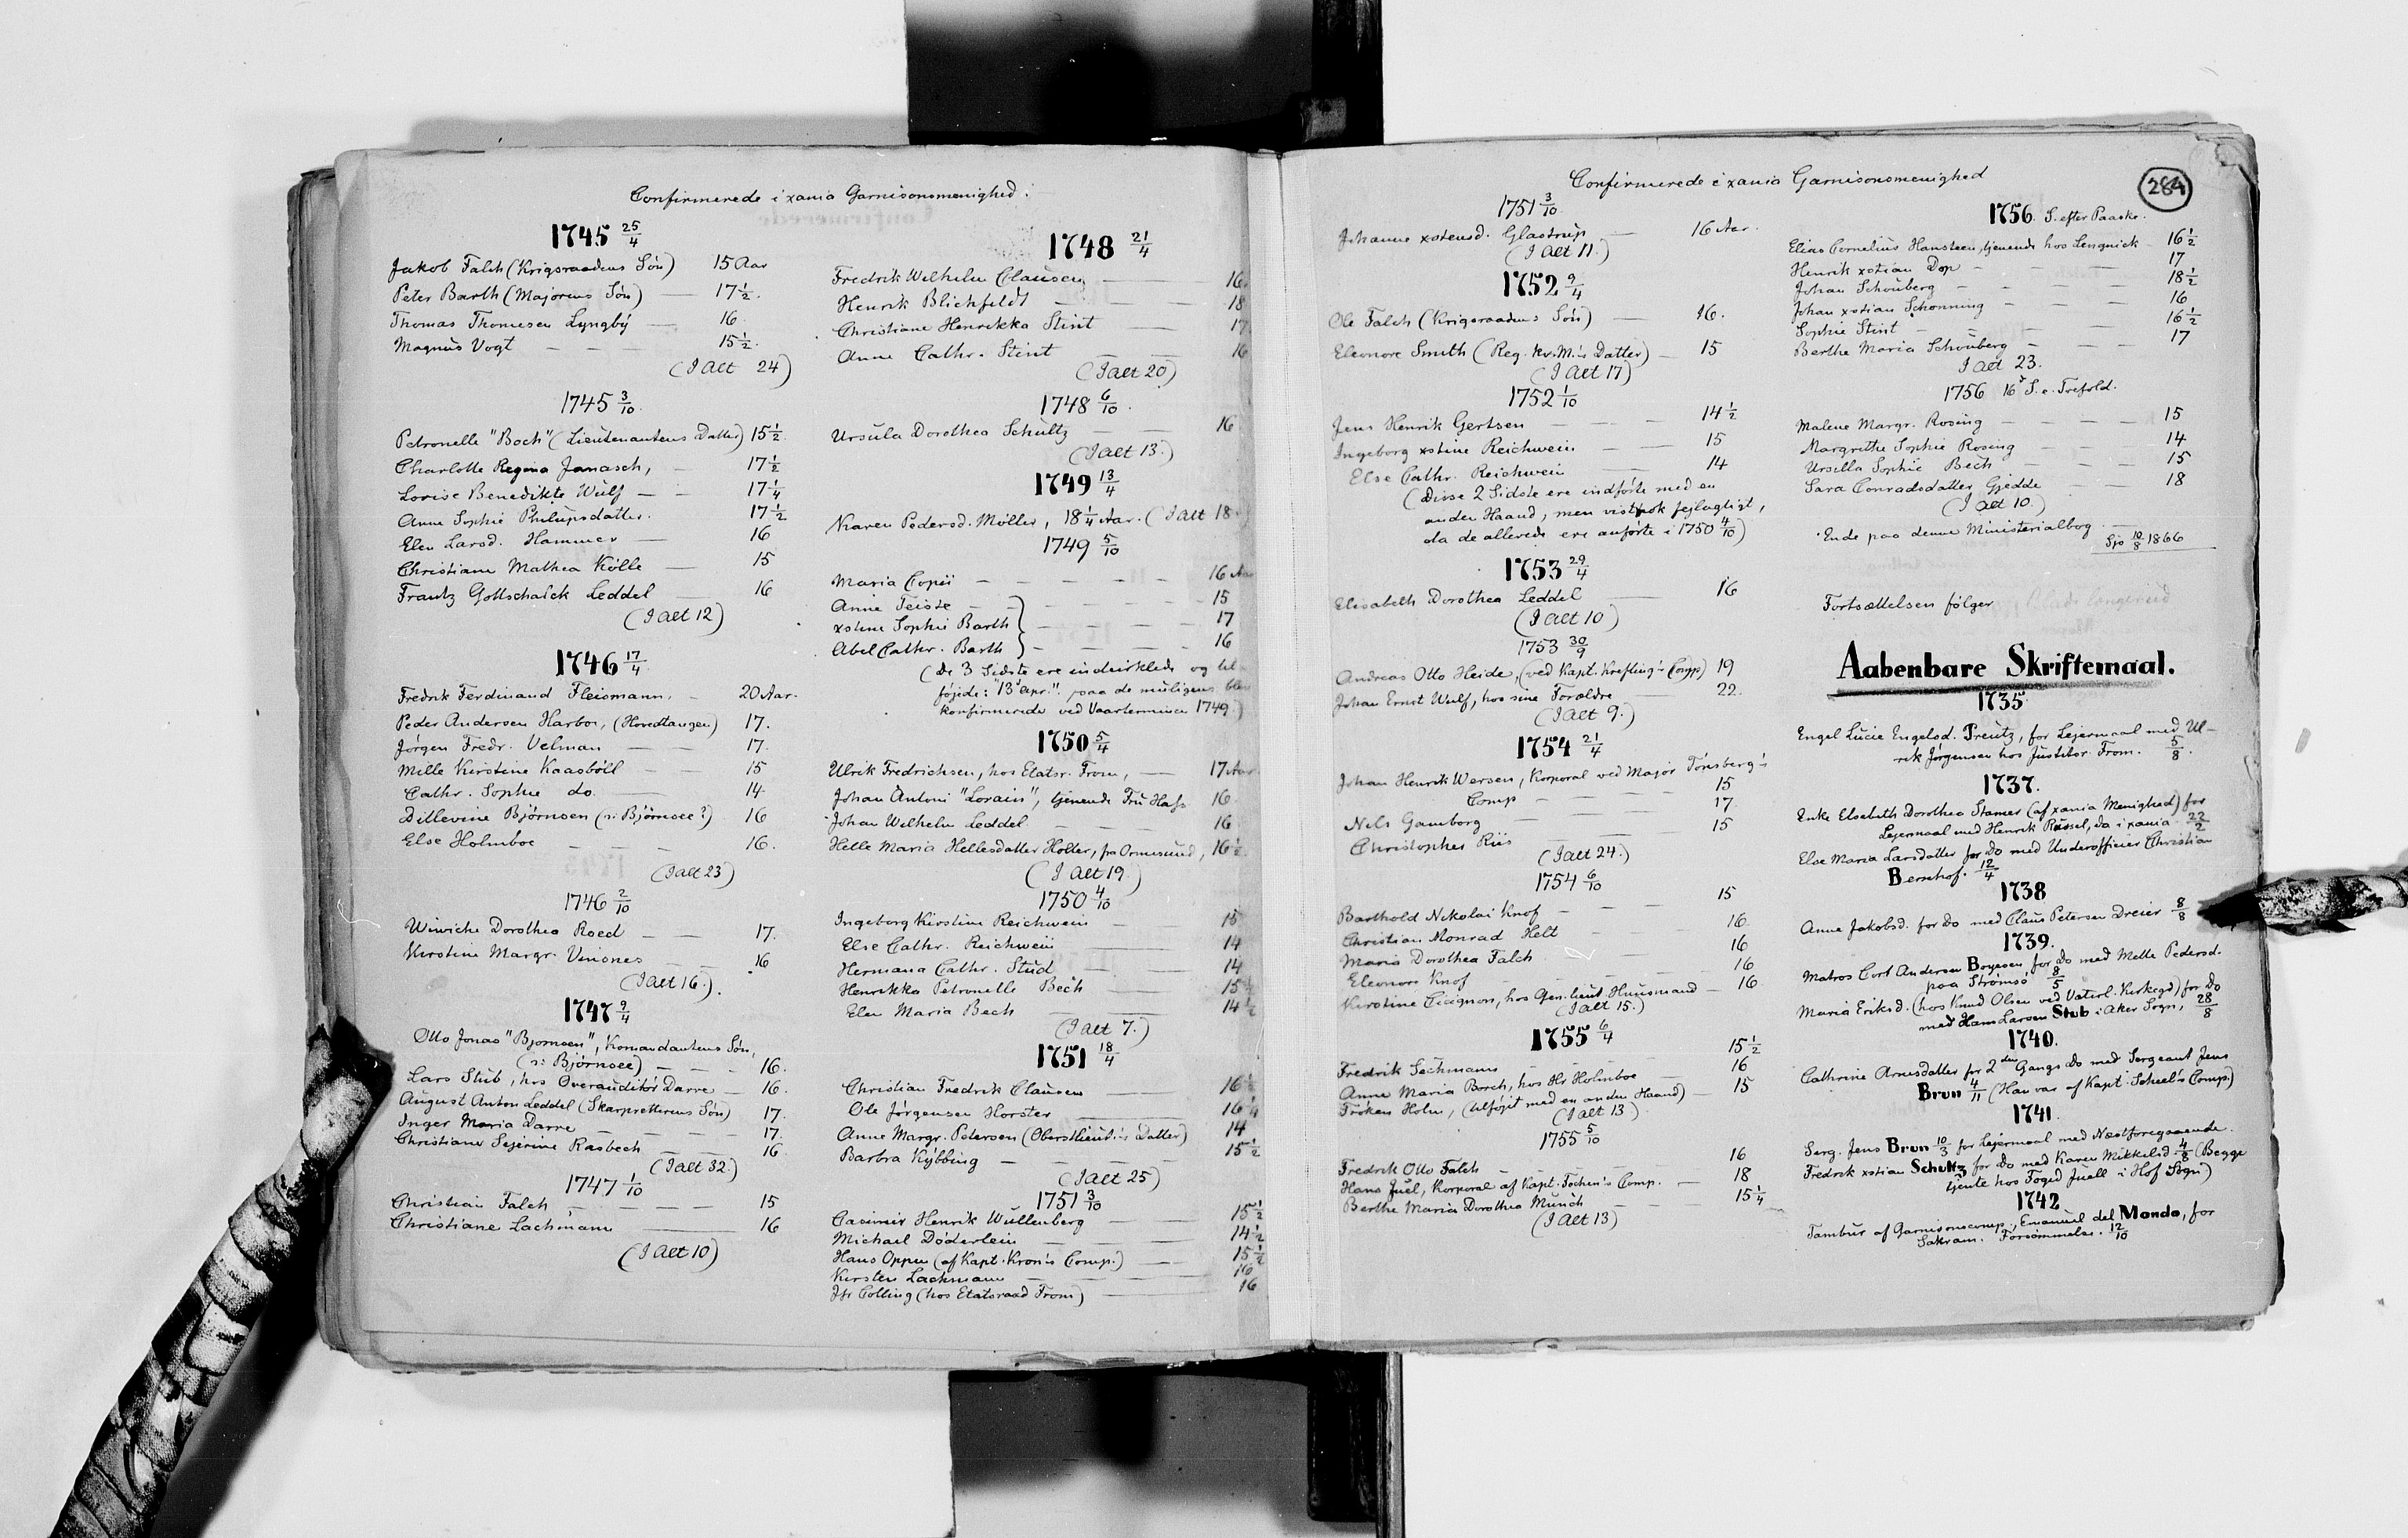 Confirmerede i xania Garnisonsmenighed.
1745 25/4
Jakob Falch (Krigsraadens Søn) 15 Aar
Peter Barth (Majorens Søn) — 17 1/2.
Thomas Thomesen Lyngby — 16
Magnus Vogt — — — 15 1/2.
(I Alt 24)
1745 3/10.
Petronelle "Boch" (Lieutenantens Datter) 15 1/2
Charlotte Regina Janasch, — 17 1/2
Lovise Benedikte Wulf — — 17 1/4
Anne Sophie Philipsdatter. 17 1/2
Elen Larsd. Hammer — 16
Christiane Mathea Kölle — 15
Frantz Gottschalck Leddel — 16
(I Alt 12)
1746 17/4
Fredrik Ferdinand Fleismann. — 20 Aar.
Peder Andersen Harboe, (Hovedtangen) 17.
Jørgen Fredr. Velman — — 17.
Mille Kirstine Kaasböll — — 15
Cathr. Sophie do. — — 14
Dillevine Bjørnsen (ɔ: Bjørnsee?) 16
Else Holmboe — — — 16.
(I alt 23)
1746 2/10
Wiwiche Dorothea Roed — — 17.
Kirstine Margr. Vinones — — 16
(I alt 16.)
1747 9/4
Otto Jonas "Bjornsen", Komandantens Søn,
(ɔ: Bjørnsee) — — — 16.
Lars Stub, hos Overauditör Darre — 16.
August Anton Leddel (Skarpretterens Søn) 17.
Inger Maria Darre — — — 17.
Christiane Sejerine Rasbech — — 16
(I alt 32.)
1747 1/10
Christian Falch — — — — 15
Christiane Lachmann — — 16
(I Alt 10)
1748 21/4
Fredrik Wilhelm Clausen — — 16.
Henrik Blichfeldt — — — 18
Christiane Henrikka Stint — — 17
Anne Cathr. Stint — — 16
(I alt 20)
1748 6/10.
Ursula Dorothea Schultz — — 16
(I alt 13.)
1749 13/4
Karen Pedersd. Möller, 18 1/4 Aar. (I Alt 18.)
1749 5/10
Maria Copii — — — — — 16 Aar
Anne Teiste — — — — — 15
xstine Sophie Barth — — — — 17
Abel Cathr. Barth — — — — 16
(De 3 Sidste ere indcirklede og til-
føjede: "13 Apr.". paa de muligens blev
konfirmerede ved Vaarterminen 1749.)
1750 5/4
Ulrik Fredrichsen, hos Etatsr. From, — 17 Aar
Johan Antoni "Lorain", tjenende Fru Hafs 16
Johan Wilhelm Leddel — — — 16
Helle Maria Hellesdatter Holter, fra Ormsund, 16 1/2
(I Alt 19)
1750 4/10
Ingeborg Kirstine Reichwein — — 15
Else Cathr. Reichwein — — 14
Hermana Cathr. Stud — — 14
Henrikka Petronelle Bech — — 15
Elen Maria Bech — — 14 1/2
(I alt 7.)
1751 18/4
Christian Fredrik Clausen — — 16 1/2
Ole Jørgensen Horster — — 16 1/4
Anne Margr. Petersen (Oberstlieut.'s Datter) 14
Barbra Kybbing — — — — 15 1/2
(I alt 25)
1751 3/10
Casimir Henrik Wullenberg — — 15 1/2
Michael Döderlein — — — 14 1/2
Hans Oppen (af Kapt. Kron's Comp.) — 15 1/2
Kirsten Lachmann — — — 16
Jfr Colling (hos Etatsraad From) — 16
Confirmerede i xania Garnisonsmenighed
284
1751 3/10
Johanne xstensd. Glastrup — 16 Aar.
(I Alt 11.)
1752 9/4
Ole Falch (Krigsraadens Søn) — 16.
Eleonore Smith (Reg. Kv. M.'s Datter) — 15
(I Alt 17)
1752 1/10
Jens Henrik Gertsen — — — 14 1/2
Ingeborg xstine Reichwein — — 15
Else Cathr. Reichwein — — 14
(Disse 2 Sidste ere indførte med en
anden Haand, men vistnok fejlagtigt,
da de allerede ere anførte i 1750 4/10)
1753 29/4
Elisabeth Dorothea Leddel — 16
(I Alt 10)
1753 30/9
Andreas Otto Heide, (ved Kapt. Krefting's Comp) 19
Johan Ernst Wulf, hos sine Forældre 22.
(I Alt 9.)
1754 21/4
Johan Henrik Wersen, Korporal ved Major Tönsberg's
Comp — — — — 15
Nils Gamborg — — — — 17.
Christopher Riis — — — 15
(I alt 24.)
1754 6/10
Barthold Nikolai Knof — — — 15
Christian Monrad Helt — — 16.
Maria Dorothea Falch — — 16
Eleonore Knof — — — 16
Kirstine Cicignon, hos Gen. lieut. Huusmand — 16.
(I alt 15.)
1755 6/4
Fredrik Sechmann — — — 15 1/2
Anne Maria Borch, hos Hr Holmboe — 16
Frøken Holm, (tilføjet med en anden Haand) — 15
(I alt 13)
1755 5/10
Fredrik Otto Falch — — — 16
Hans Juel, Korporal af Kapt. Tochen's Comp. — 18
Berthe Maria Dorothea Munch — — 15 1/4
(I Alt 13)
1756. S. efter Paaske.
Elias Cornelius Hansteen, tjenende hos Lengnick 16 1/2
Henrik xstian Dop — — — 17
Johan Schouberg — — — 18 1/2
Johan xstian Schonning — — 16
Sophie Stint — — — 16 1/2
Berthe Maria Schouberg — — 17
I alt 23.
1756 16de S. e. Trefold.
Malene Margr. Rosing — — — 15
Margrethe Sophie Rosing — — 14
Ursilla Sophie Bech — — 15
Sara Conradsdatter Gjedde — — 18
(I Alt 10.)
Ende paa denne Ministerialbog. —
Sjo 10/8 1866
Fortsættelsen følger
Aabenbare Skriftemaal.
1735
Engel Lucie Engelsd. Preutz, for Lejermaal med Ul-
rik Jørgensen hos Justitsr. From. 5/8.
1737.
Enke Elsebeth Dorothea Stamer (af xania Menighed) for
Lejermaal med Henrik Rüssel, da i xania 22/2
Else Maria Larsdatter for Do med Underofficier Christian
Bernhof. 12/4
1738
Anne Jakobsd. for Do med Claus Petersen Dreier 8/8
1739.
Matros Cort Andersen Boyesen for Do med Mette Pedersd.
paa Strömsö 8/5
Maria Eriksd. (hos Knud Olsen ved Vaterl. Kirkegd) for Do
med Hans Larsen Stub i Aker Sogn, 28/8
1740.
Cathrine Arnesdatter for 2den Gangs Do med Sergeant Jens
Brun 4/11 (Han var af Kapt. Scheel's Comp.)
1741.
Serg. Jens Brun 10/3 for Lejermaal med Næstforegaaende.
Fredrik xstian Schultz for Do med Karen Mikkelsd 4/8 (Begge
tjente hos Foged Juell i Hof Sogn)
1742
Tambur af Garnisonscomp., Emanuel del Mondo, for
Sakram. Forsømmelse. 12/10